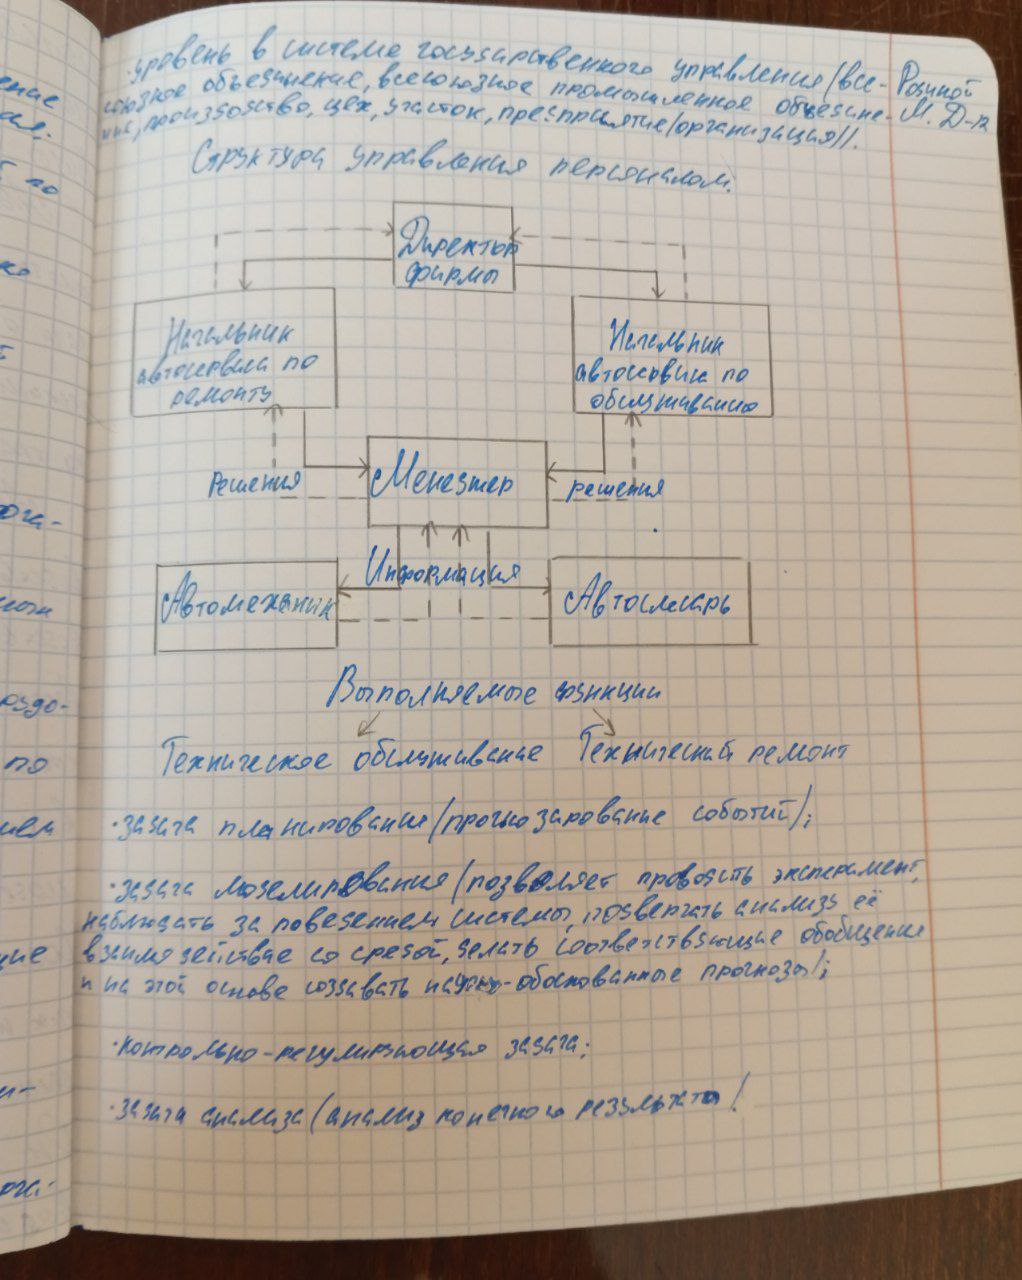 ·уровень в системе государственного управления (все-
союзное объединение, всесоюзное промышленное объедине-
ние, производство, цех, участок, предприятие (организация)).
М. Д-12
Структура управления персоналом.
Директор
фирмы
Начальник
автосервиса по
ремонту
Начальник
автосервиса по
обслуживанию
Решения
Менеджер
решения
Информация
Автомеханик
Автослесарь
Выполняемые функции
Техническое обслуживание Технический ремонт
·задача планирование (прогнозирование событий);
·задача моделирования (позволяет проводить эксперимент,
наблюдать за поведением системы, подвергать анализу её
взаимодействие со средой, делать соответствующие обобщение
и на этой основе создавать научно-обоснованные прогнозы);
·контрольно-регулирующая задача;
·задача анализа (анализ конечного результата).